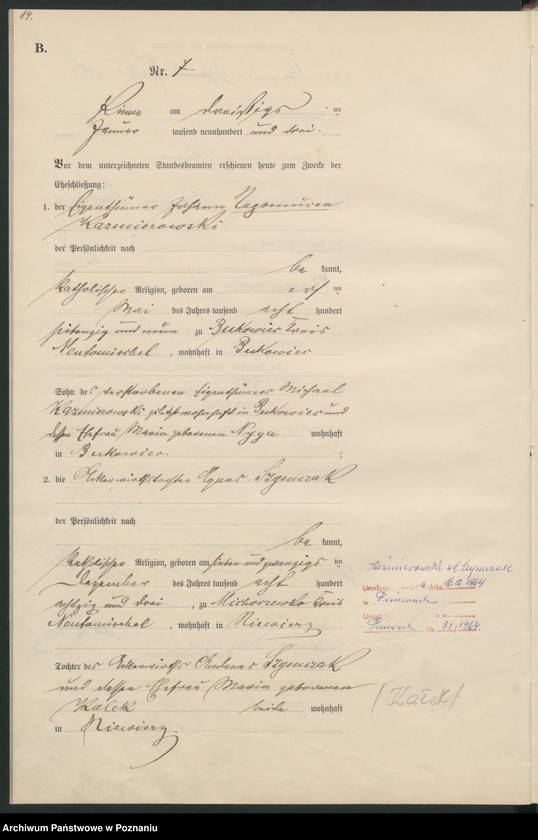 14.
B.
Nr. 7
am dreißigs ten
Januar tausend neunhundert und drei.
Vor dem unterzeichneten Standesbeamten erschienen heute zum Zwecke der
Eheschließung:
1. der Eigenthümer Johann Nepomucen
Kazmierowski
der Persönlichkeit nach
be kannt,
katholischer Religion, geboren am ten
Mai des Jahres tausend acht hundert
siebenzig und neun zu Bukowiec Kreis
Neutomischel, wohnhaft in Bukowiec
Sohn des verstorbenen Eigenthümers Michael
Kazmierowski zuletzt wohnhaft in Bukowiec und
dessen Ehefrau Maria geborenen wohnhaft
in Bukowiec. ;
2. die Ackerwirthstochter Agnes Szymczak
der Persönlichkeit nach
be kannt,
katholischer Religion, geboren am sieben und zwanzigs ten
Dezember des Jahres tausend acht hundert
achtzig und drei, zu Michorzewko Kreis
Neutomischel, wohnhaft in Niewierz
Kaźmierowska zd. Szymczak
dnia 16.12.1964
w Pniewach
Pniewach Nr 31/1964.
Tochter des Ackerwirths Andreas Szymczak
und dessen Ehefrau Maria geborenen
Kałek beide wohnhaft
in Niewierz.
/Kałek/
Archiwum Państwowe w Poznaniu